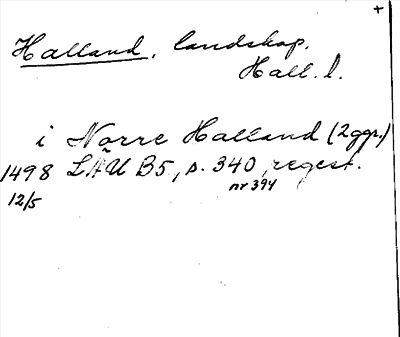 +
Halland, landskap.
Hall. l.
i Norre Halland (2 ggr.)
1498 LÄU B5, s. 340 regest.
12/5 nr 394